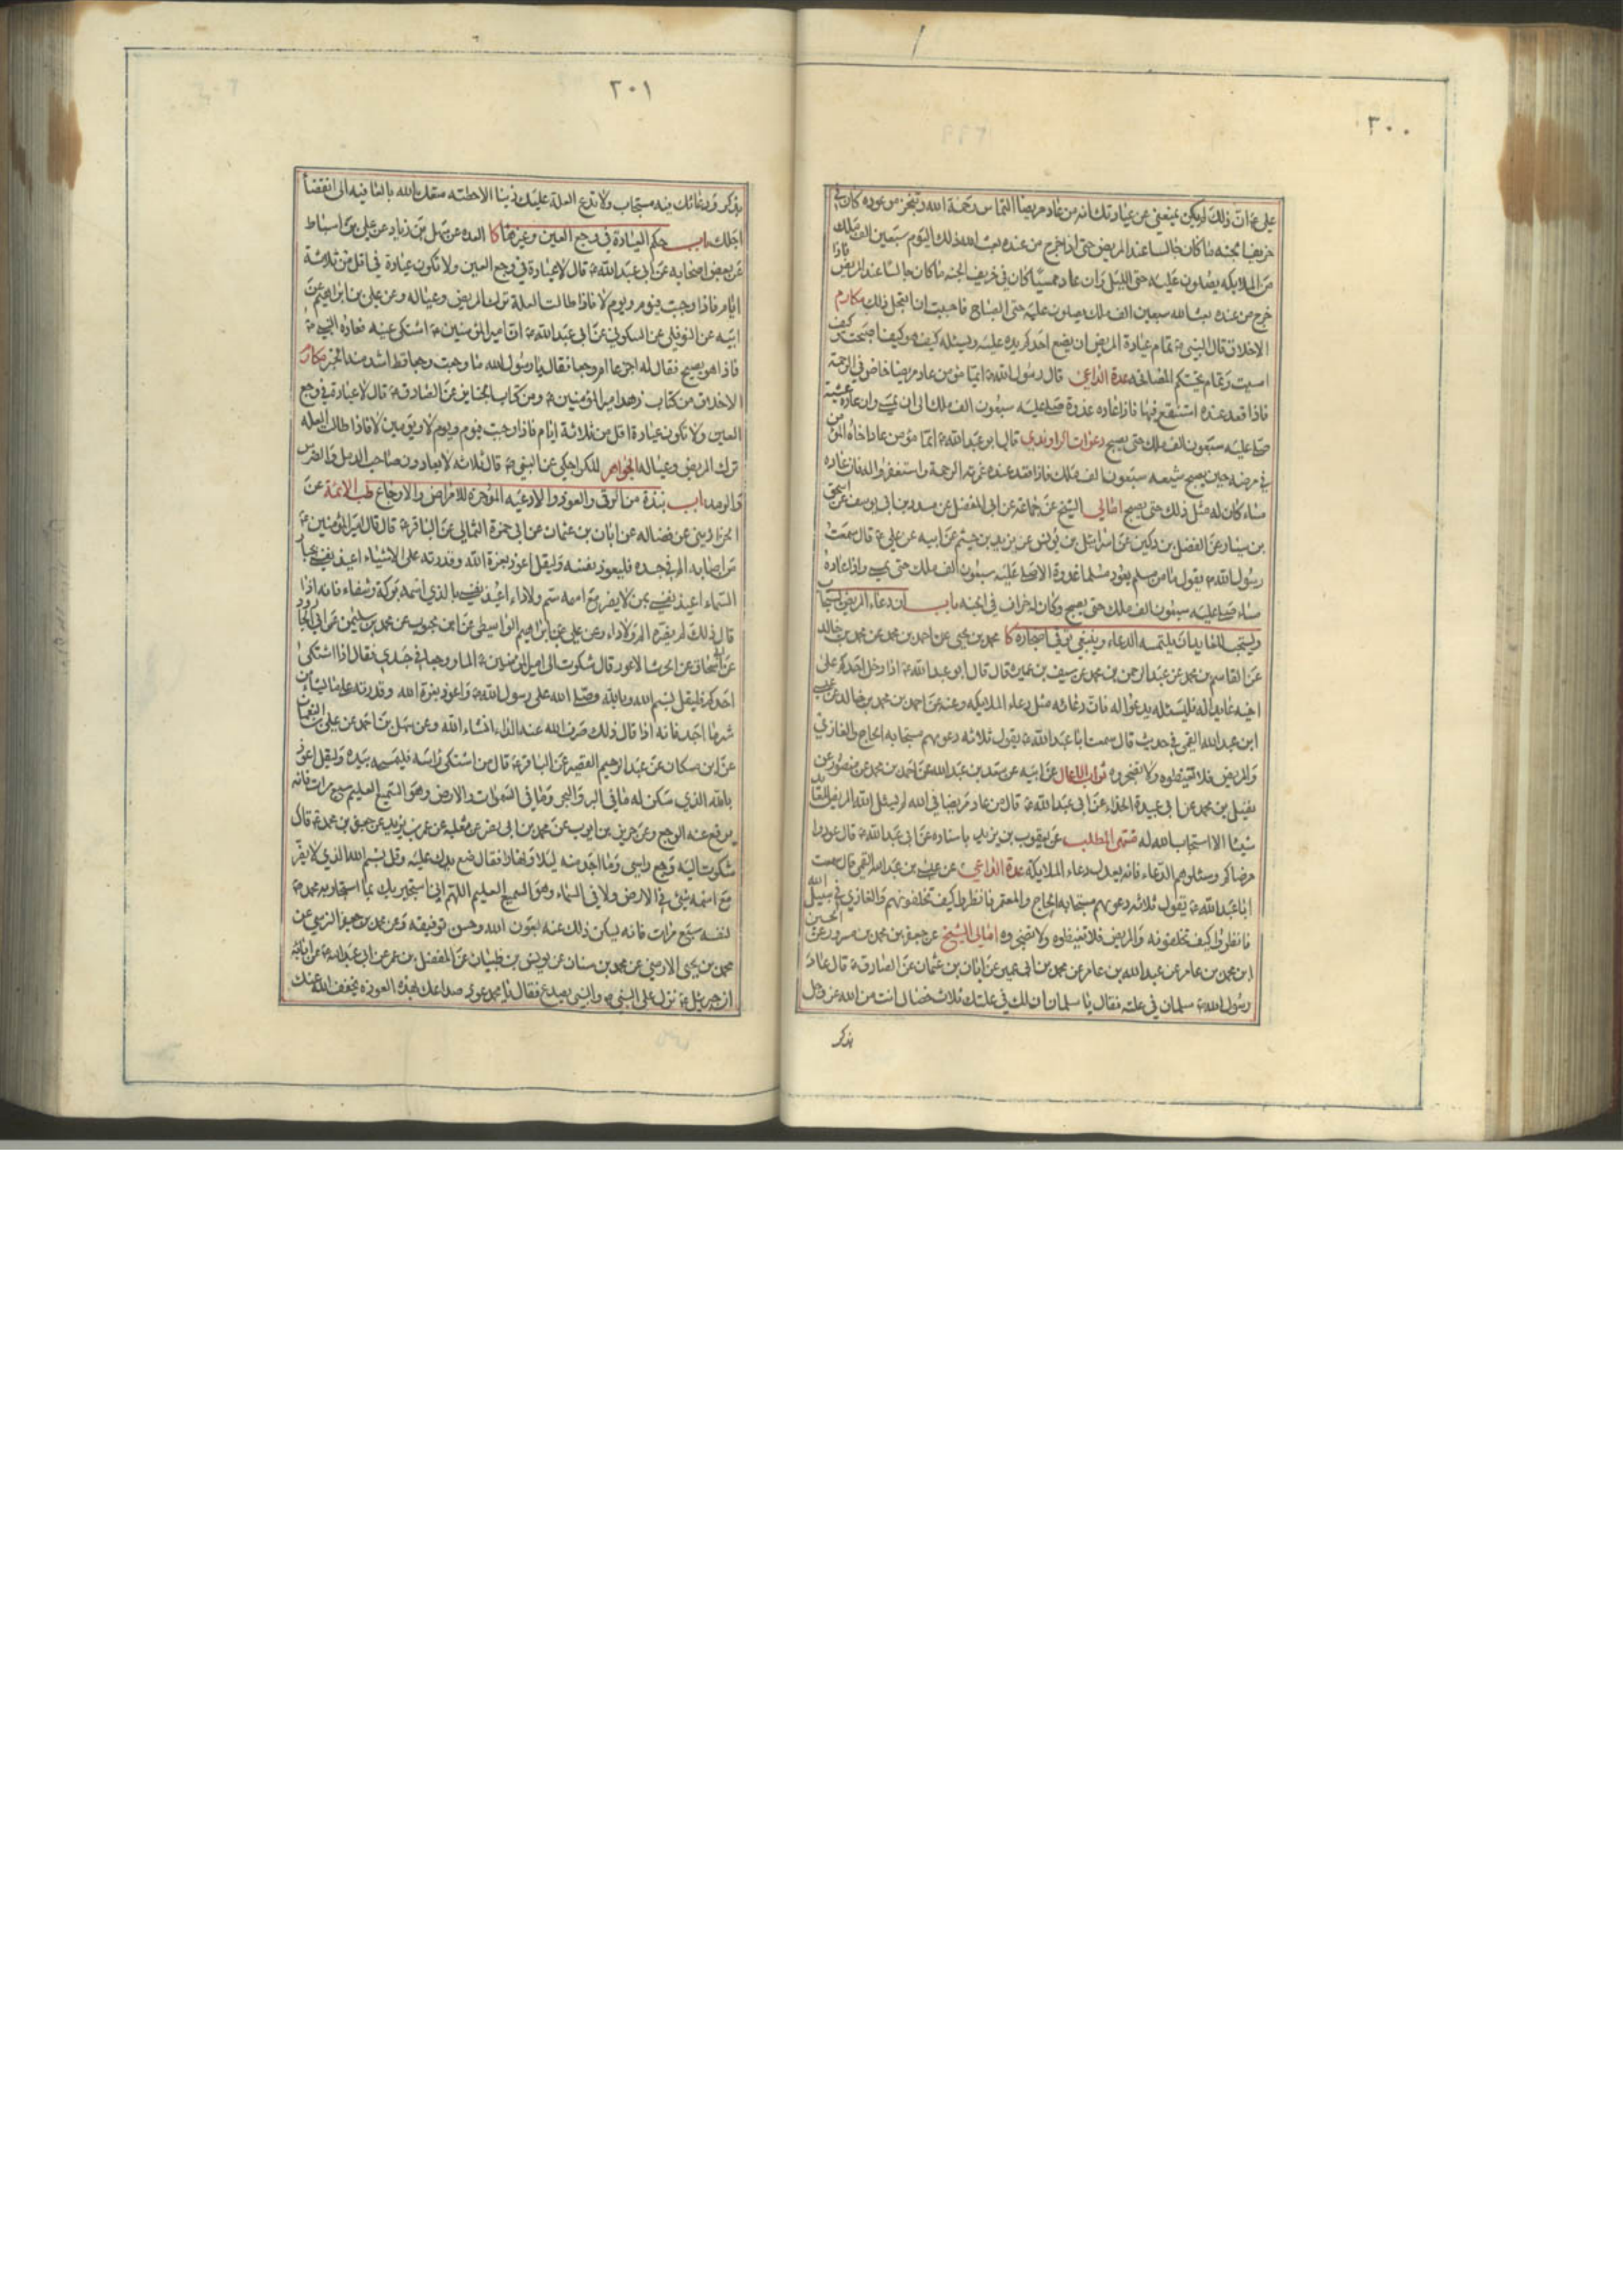 ٣٠٠
علي ع ان ذلك لم يكن يمنعني عن عيادتك انه من عاد مريضا التماس رحمة الله وتنجز موعوده كان في
خريف الجنه ما كان جالسا عند المريض حتى اذا خرج من عنده بعث الله ذلك اليوم سبعين الف ملك
من الملائكه يصلون عليه حتى الليل وان عاد ممسيا كان في خريف الجنه ما كان جالسا عند المريض فاذا
خرج من عنده بعث الله سبعين الف ملك يصلون عليه حتى الصباح فاحببت ان اتعجل ذلك مكارم
الاخلاق قال النبي ص تمام عيادة المريض ان يضع احدكم يده عليه ويسئله كيف هو كيف اصبحت كيف
امسيت وتمام تحيتكم المصافحه عدة الداعي قال رسول الله ص ايما مؤمن عاد مريضا خاض في الرحمة
فاذا قعد عنده استنقع فيها فاذا عاده غدوة صلى عليه سبعون الف ملك الى ان يمسي وان عاده عشية
صلى عليه سبعون الف ملك حتى يصبح دعوات الراوندي قال ابو عبد الله ع ايما مؤمن عاد اخاه المؤمن
في مرضه حين يصبح شيعه سبعون الف ملك فاذا قعد عنده غمرته الرحمة واستغفروا له فان عاده
مساء كان له مثل ذلك حتى يصبح امالي الشيخ عن جماعة عن ابي المفضل عن بن ابي يوسف عن اسحق
بن سيار عن الفضل بن دكين عن اسرائيل بن يونس عن يزيد بن خيثم عن ابيه عن علي ع قال سمعت
رسول الله ص يقول ما من مسلم يعود مسلما غدوة الا صلى عليه سبعون الف ملك حتى يمسي واذا عاده
مساء صلى عليه سبعون الف ملك حتى يصبح وكان له خراف في الجنه باب ان دعاء المريض مستجاب
ويستحب للعايد ان يلتمسه الدعاء وينبغي توقي اضجاره كا محمد بن يحيى عن احمد بن محمد عن محمد بن خالد
عن القاسم بن محمد عن عبد الرحمن بن محمد عن سيف بن عميرة قال قال ابو عبد الله ع اذا دخل احدكم على
اخيه عايدا له فليسئله يدعو له فان دعائه مثل دعاء الملايكه وعنه عن احمد بن محمد بن خالد عن عيسى
ابن عبد الله القمي في حديث قال سمعت ابا عبد الله ع يقول ثلاثه دعوتهم مستجابه الحاج والغازي
والمريض فلا تغيظوه ولا تضجروه ثواب الاعمال عن ابيه عن سعد بن عبد الله عن احمد بن محمد عن منصور عن
فضيل بن محمد عن ابي عبيدة الحذاء عن ابي عبد الله ع قال من عاد مريضا في الله لم يسئل الله المريض للعايد
شيئا الا استجاب الله له منتهى المطلب عن يعقوب بن يزيد باسناده عن ابي عبد الله ع قال عودوا
مرضاكم وسئلوهم الدعاء فانه يعدل دعاء الملايكه عدة الداعي عن عيسى بن عبد الله القمي قال سمعت
ابا عبد الله ع يقول ثلاثه دعوتهم مستجابه الحاج والمعتمر فانظروا كيف تخلفونهم والغازي في سبيل الله
فانظروا كيف تخلفونه والمريض فلا تغيظوه ولا تضجروه امالي الشيخ عن جعفر بن محمد بن مسرور عن الحسين
ابن محمد بن عامر عن عبد الله بن عامر عن محمد بن ابي عمير عن ابان بن عثمان عن الصادق ع قال عاد
رسول الله ص سلمان في علته فقال يا سلمان ان لك في علتك ثلاث خصال انت من الله عز وجل
بذكر
٣٠١
بذكر ودعائك فيه مستجاب ولا تدع العلة عليك ذنبا الا حطته متعك الله بالعافيه الى انقضاء
اجلك باب حكم العيادة في وجع العين وغيرها كا العده عن سهل بن زياد عن علي بن اسباط
عن بعض اصحابه عن ابي عبد الله ع قال لا عيادة في وجع العين ولا تكون عيادة في اقل من ثلاثة
ايام فاذا وجبت فيوم ويوم لا فاذا طالت العلة ترك المريض وعياله وعن علي بن ابراهيم عن
ابيه عن النوفلي عن السكوني عن ابي عبد الله ع ان امير المؤمنين ع اشتكى عينه فعاده النبي ص
فاذا هو يصيح فقال له اجزعا ام وجعا فقال يا رسول الله ما وجعت وجعا قط اشد منه الخبر مكارم
الاخلاق من كتاب زهد امير المؤمنين ع ومن كتاب الجنايز عن الصادق ع قال لا عيادة في وجع
العين ولا تكون عيادة اقل من ثلاثة ايام فاذا وجبت فيوم ويوم لا ويومين لا فاذا طالت العله
ترك المريض وعياله الجواهر للكراجكي عن النبي ص قال ثلاثه لا يعادون صاحب الدمل والضرس
والرمد باب نبذة من الرقى والعوذ والادعيه الموجزه للامراض والاوجاع طب الائمة عن
الخراذيني عن فضاله عن ابان بن عثمان عن ابي حمزة الثمالي عن الباقر ع قال قال امير المؤمنين ع
من اصابه الم في جسده فليعوذ نفسه وليقل اعوذ بعزة الله وقدرته على الاشياء اعيذ نفسي بجبار
السماء اعيذ نفسي بمن لا يضر مع اسمه سم ولا داء اعيذ نفسي بالذي اسمه بركة وشفاء فانه اذا
قال ذلك لم يضره الم ولا داء وعن علي بن ابراهيم الواسطي عن ابن محبوب عن محمد بن سليمن عن ابي الجارود
عن ابي اسحاق عن الحرث الاعور قال شكوت الى امير المؤمنين ع الما ووجعا في جسدي فقال اذا اشتكى
احدكم فليقل بسم الله وبالله وصلى الله على رسول الله ص واعوذ بعزة الله وقدرته على ما يشاء من
شر ما اجد فانه اذا قال ذلك صرف الله عنه الداء انشاء الله وعن سهل بن احمد عن علي بن النعمان
عن ابن مسكان عن عبد الرحيم القصير عن الباقر ع قال من اشتكى راسه فليمسحه بيده وليقل اعوذ
بالله الذي سكن له ما في البر والبحر وما في السموات والارض وهو السميع العليم سبع مرات فانه
يرفع عنه الوجع وعن حريز بن ايوب عن محمد بن ابي نصر عن ثعلبه عن عمرو بن يزيد عن جعفر بن محمد ع قال
شكوت اليه وجع راسي وما اجد منه ليلا ونهارا فقال ضع يدك عليه وقل بسم الله الذي لا يضر
مع اسمه شيئ في الارض ولا في السماء وهو السميع العليم اللهم اني استجير بك بما استجار به محمد ص
لنفسه سبع مرات فانه يسكن ذلك عنه بعون الله وحسن توفيقه وعن محمد بن جعفر النرسي عن
محمد بن يحيى الارمني عن محمد بن سنان عن يونس بن ظبيان عن المفضل بن عمر عن ابي عبد الله ع عن ابائه
ان جبرئيل ع نزل على النبي ص والنبي يصدع فقال يا محمد عوذ صداعك بهذه العوذه يخفف الله عنك